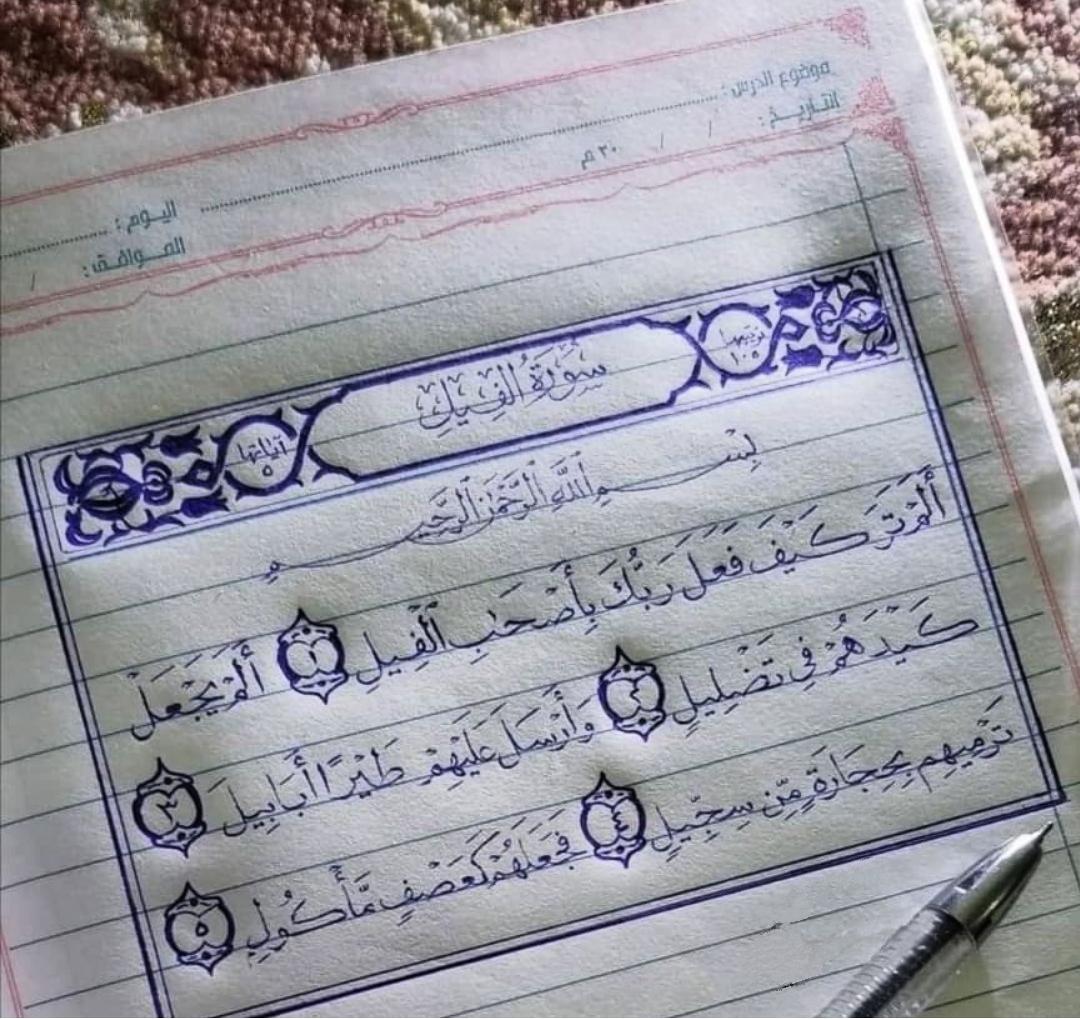 موضوع الدرس :
التاريخ : / / ٢٠ م
اليوم :
الموافق : /
ترتيبها ١٠٥
سُورَةُ الفِيلِ
آياتها ٥
بِسْمِ اللَّهِ الرَّحْمَٰنِ الرَّحِيمِ
أَلَمْ تَرَ كَيْفَ فَعَلَ رَبُّكَ بِأَصْحَٰبِ ٱلْفِيلِ ١ أَلَمْ يَجْعَلْ
كَيْدَهُمْ فِي تَضْلِيلٍ ٢ وَأَرْسَلَ عَلَيْهِمْ طَيْرًا أَبَابِيلَ ٣
تَرْمِيهِم بِحِجَارَةٍ مِّن سِجِّيلٍ ٤ فَجَعَلَهُمْ كَعَصْفٍ مَّأْكُولٍ ٥